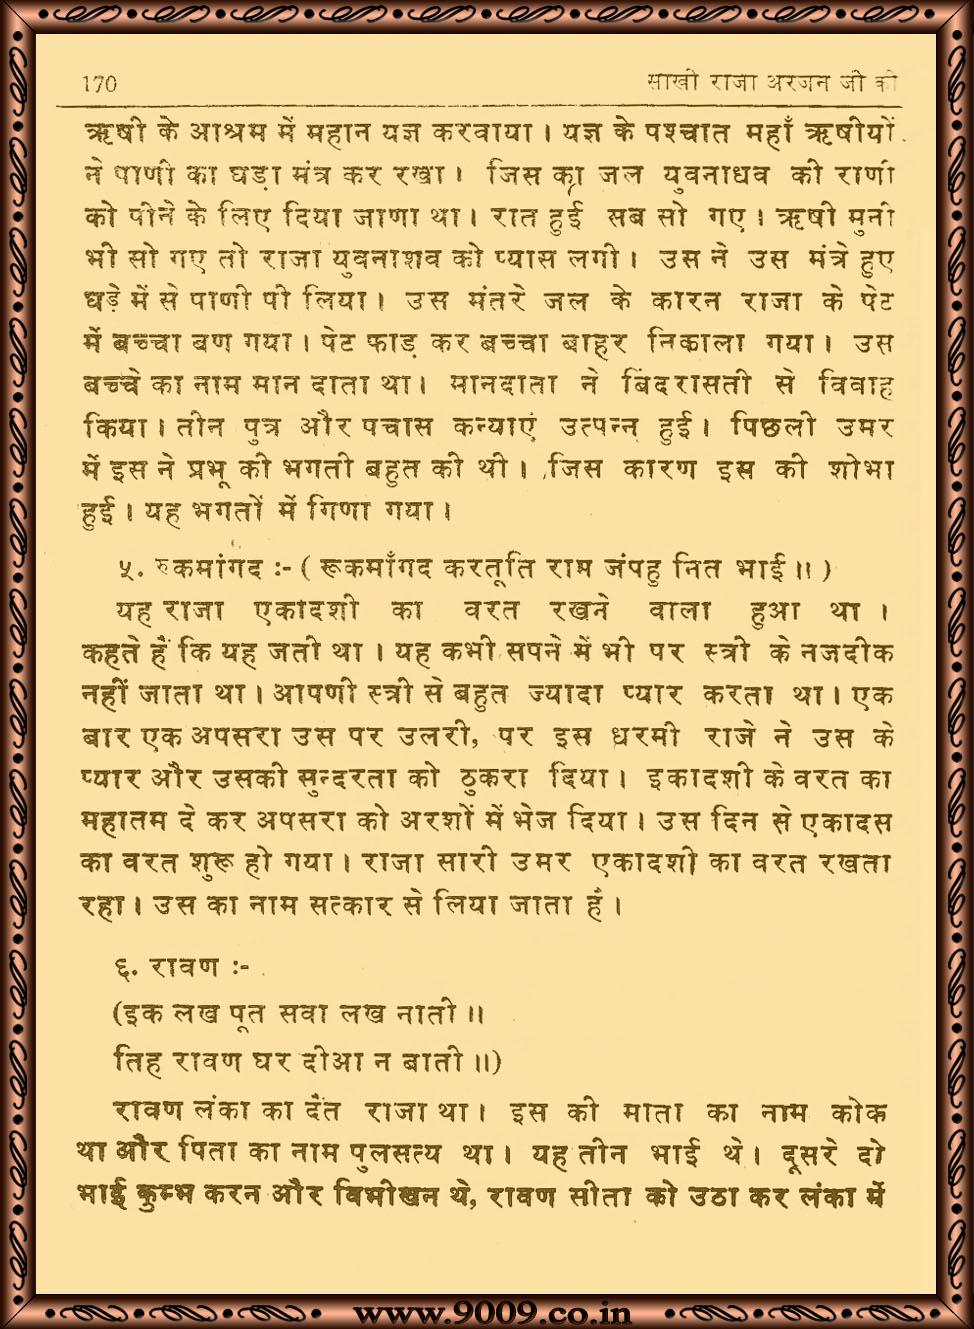 170 साखी राजा अरजन जी की
ऋषी के आश्रम में महान यज्ञ करवाया । यज्ञ के पश्चात महाँ ऋषीयों
ने पाणी का घड़ा मंत्र कर रखा । जिस का जल युवनाधव की राणी
को पीने के लिए दिया जाणा था । रात हुई सब सो गए । ऋषी मुनी
भी सो गए तो राजा युवनाशव को प्यास लगी । उस ने उस मंत्रे हुए
घड़े में से पाणी पी लिया । उस मंतरे जल के कारन राजा के पेट
में बच्चा बण गया । पेट फाड़ कर बच्चा बाहर निकाला गया । उस
बच्चे का नाम मान दाता था । मानदाता ने बिंदरासती से विवाह
किया । तीन पुत्र और पचास कन्याएं उत्पन्न हुई । पिछली उमर
में इस ने प्रभू की भगती बहुत की थी । जिस कारण इस की शोभा
हुई । यह भगतों में गिणा गया ।
५. रुकमांगद :- ( रूकमाँगद करतूति राम जंपहु नित भाई ॥ )
यह राजा एकादशी का वरत रखने वाला हुआ था ।
कहते हैं कि यह जती था । यह कभी सपने में भी पर स्त्री के नजदीक
नहीं जाता था । आपणी स्त्री से बहुत ज्यादा प्यार करता था । एक
बार एक अपसरा उस पर उलरी, पर इस धरमी राजे ने उस के
प्यार और उसकी सुन्दरता को ठुकरा दिया । इकादशी के वरत का
महातम दे कर अपसरा को अरशों में भेज दिया । उस दिन से एकादस
का वरत शुरू हो गया । राजा सारी उमर एकादशी का वरत रखता
रहा । उस का नाम सत्कार से लिया जाता हैं ।
६. रावण :-
(इक लख पूत सवा लख नाती ॥
तिह रावण घर दीआ न बाती ॥)
रावण लंका का दैंत राजा था । इस की माता का नाम कोक
था और पिता का नाम पुलसत्य था । यह तीन भाई थे । दूसरे दो
भाई कुम्भ करन और विभीखन थे, रावण सीता को उठा कर लंका में
www.9009.co.in